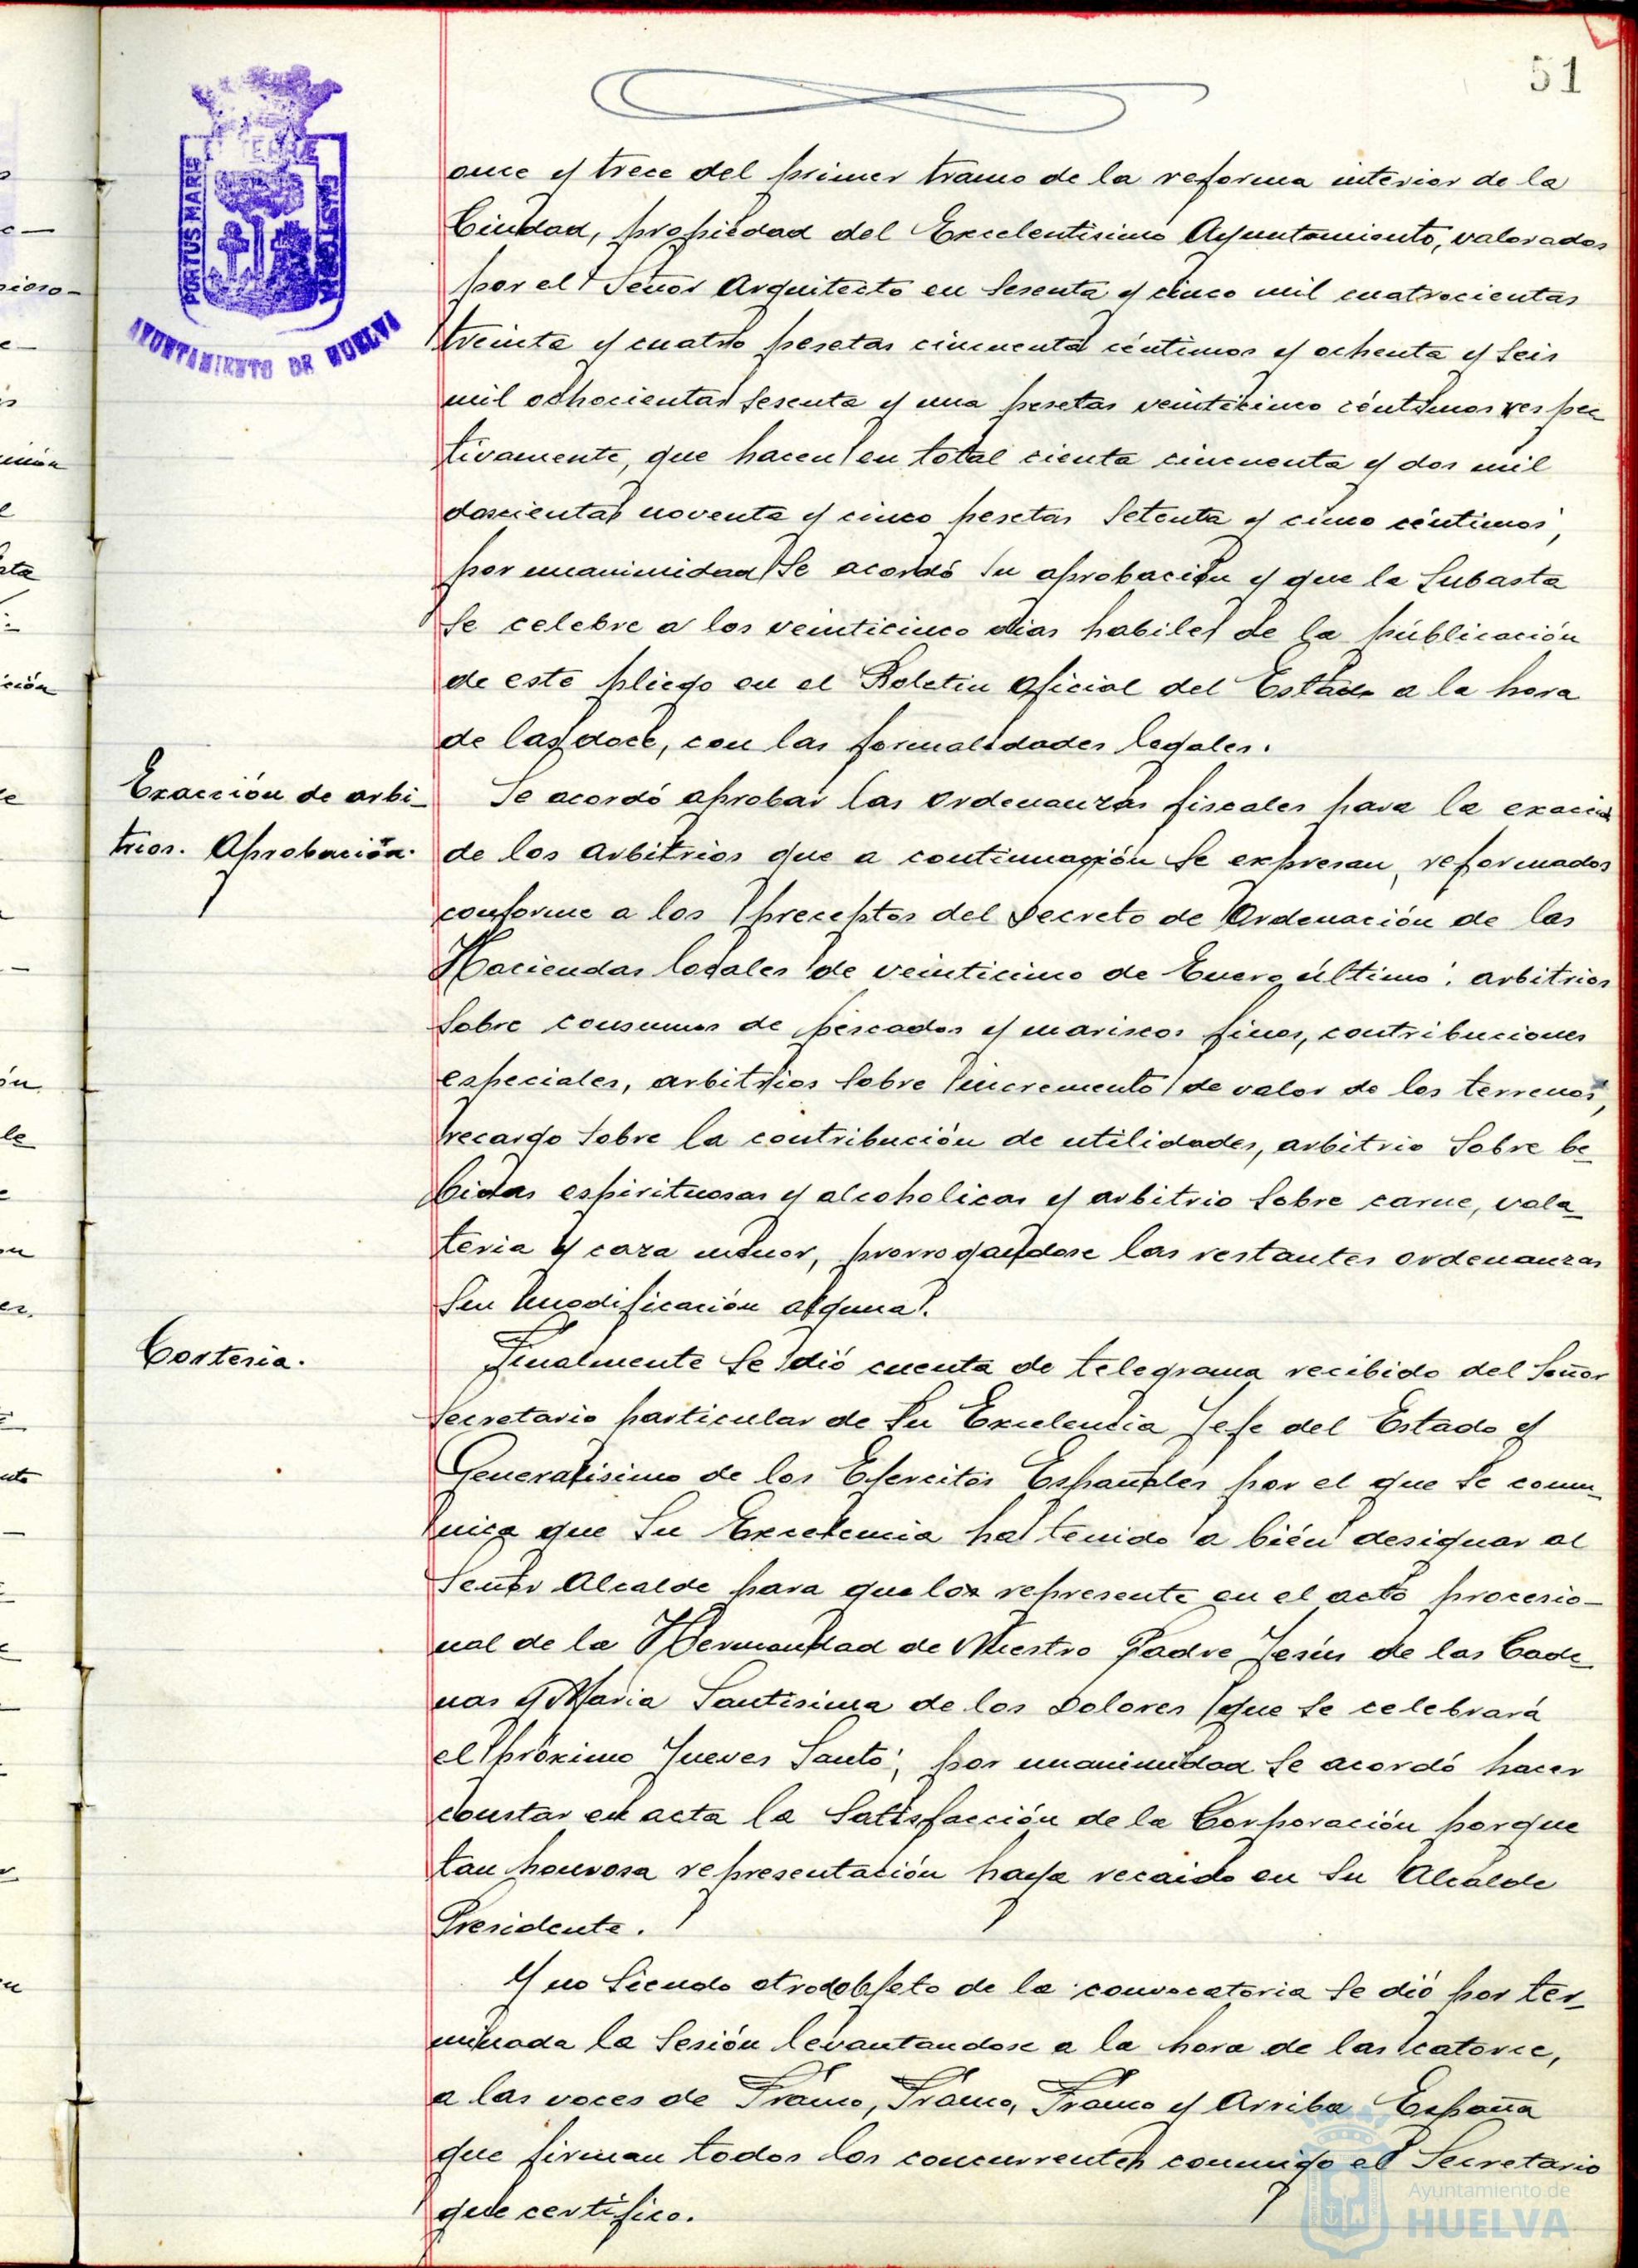 51
PORTUS MARIS
ET TERRE
CUSTODIA
AYUNTAMIENTO DE HUELVA
once y trece del primer tramo de la reforma interior de la
Ciudad, propiedad del Excelentisimo Ayuntamiento, valorados
por el Señor Arquitecto en sesenta y cinco mil cuatrocientas
treinta y cuatro pesetas cincuenta céntimos y ochenta y seis
mil ochocientas sesenta y una pesetas veinticinco céntimos respec
tivamente, que hacen en total cienta cincuenta y dos mil
doscientas noventa y cinco pesetas setenta y cinco céntimos,
por unanimidad se acordó su aprobación y que la subasta
se celebre a los veinticinco dias habiles de la públicación
de este pliego en el Boletin Oficial del Estado a la hora
de las doce, con las formalidades legales.
Exacción de arbi-
trios. Aprobación.
Se acordó aprobar las ordenanzas fiscales para la exacción
de los arbitrios que a continuación se expresan, reformados
conforme a los preceptos del Decreto de Ordenación de las
Haciendas locales de veinticinco de Enero último: arbitrios
sobre consumos de pescados y mariscos finos, contribuciones
especiales, arbitrios sobre incremento de valor de los terrenos,
recargo sobre la contribución de utilidades, arbitrio sobre be-
bidas espirituosas y alcoholicas y arbitrio sobre carne, vola-
teria y caza menor, prorrogandose las restantes ordenanzas
sin modificación alguna.
Cortesia.
Finalmente se dió cuenta de telegrama recibido del Señor
Secretario particular de Su Excelencia Jefe del Estado y
Generalisimo de los Ejercitos Españoles por el que se comu-
nica que Su Excelencia ha tenido a bién designar al
Señor Alcalde para que lo represente en el acto procesio-
nal de la Hermandad de Nuestro Padre Jesús de las Cade-
nas y Maria Santisima de los Dolores que se celebrará
el próximo Jueves Santo; por unanimidad se acordó hacer
constar en acta la satisfacción de la Corporación porque
tan honrosa representación haya recaido en su Alcalde
Presidente.
Y no siendo otro objeto de la convocatoria se dió por ter-
minada la sesión levantandose a la hora de las catorce,
a las voces de Franco, Franco, Franco y Arriba España
que firman todos los concurrentes conmigo el Secretario
que certifico.
Ayuntamiento de
HUELVA